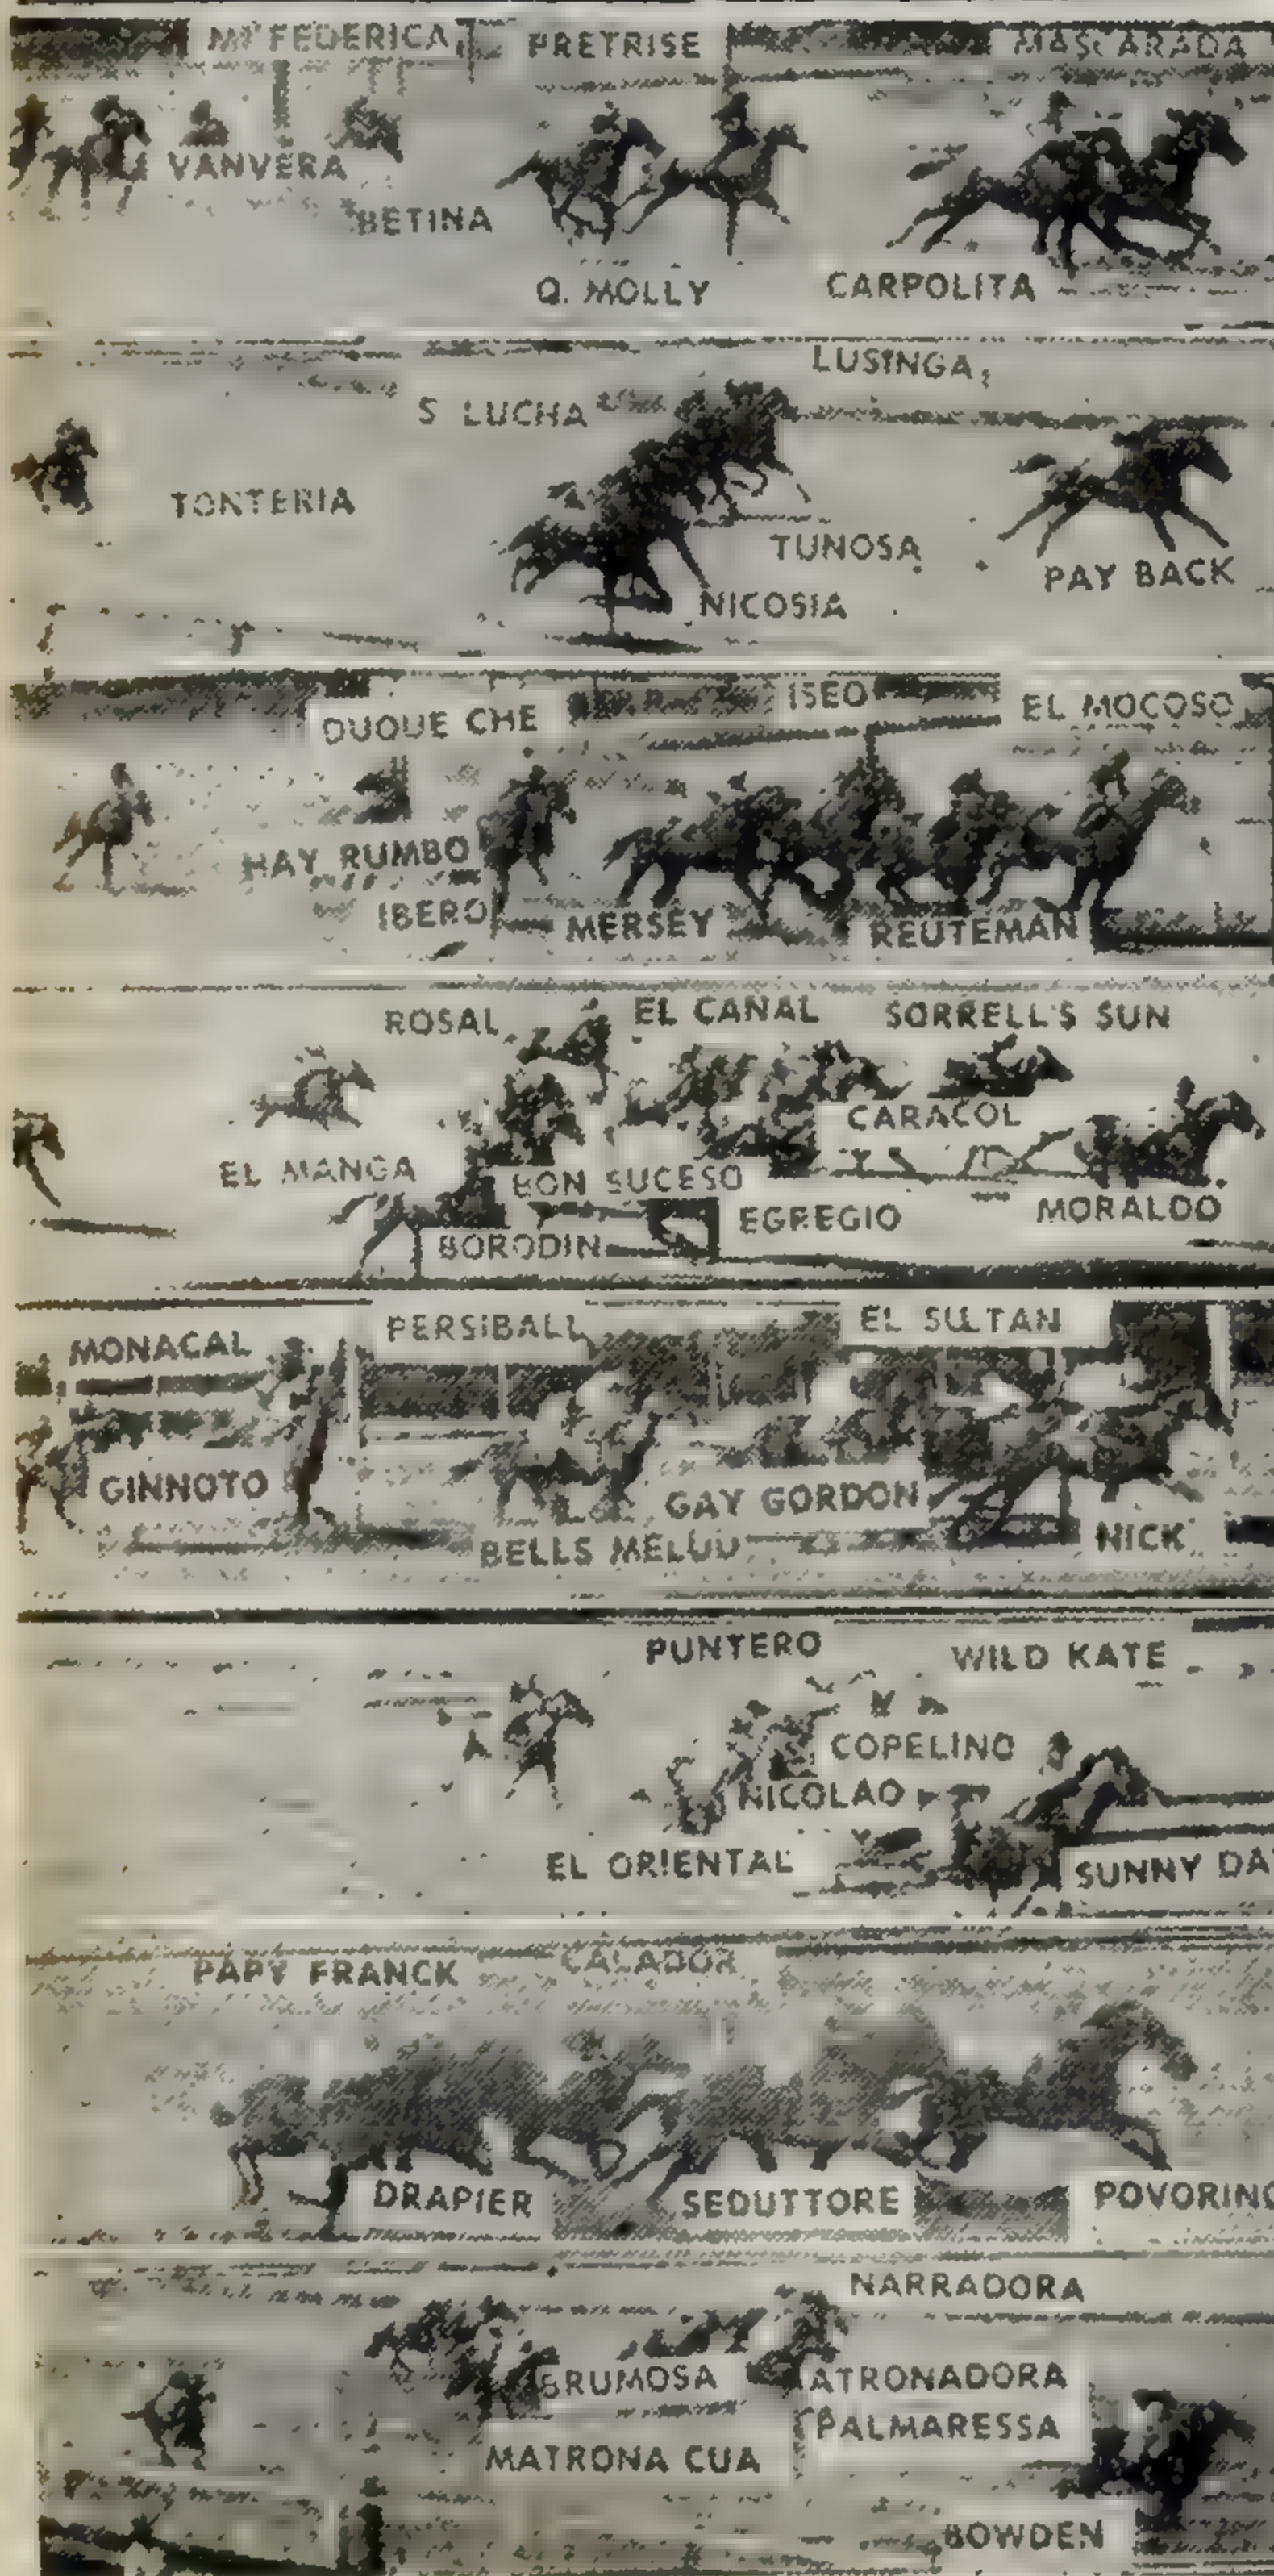 Mª FEDERICA PRETRISE MASCARADA
VANVERA
BETINA
Q. MOLLY CARPOLITA
LUSINGA
S LUCHA
TONTERIA
TUNOSA
PAY BACK
NICOSIA
ISEO EL MOCOSO
DUQUE CHE
HAY RUMBO
IBERO MERSEY REUTEMAN
ROSAL EL CANAL SORRELL'S SUN
CARACOL
EL MANGA BON SUCESO
EGREGIO MORALDO
BORODIN
MONACAL PERSIBALL EL SULTAN
GINNOTO GAY GORDON
BELLS MELUD NICK
PUNTERO WILD KATE
COPELINO
NICOLAO
EL ORIENTAL SUNNY DA
PAPY FRANCK CALADOR
DRAPIER SEDUTTORE POVORINO
NARRADORA
BRUMOSA ATRONADORA
PALMARESSA
MATRONA CUA
BOWDEN